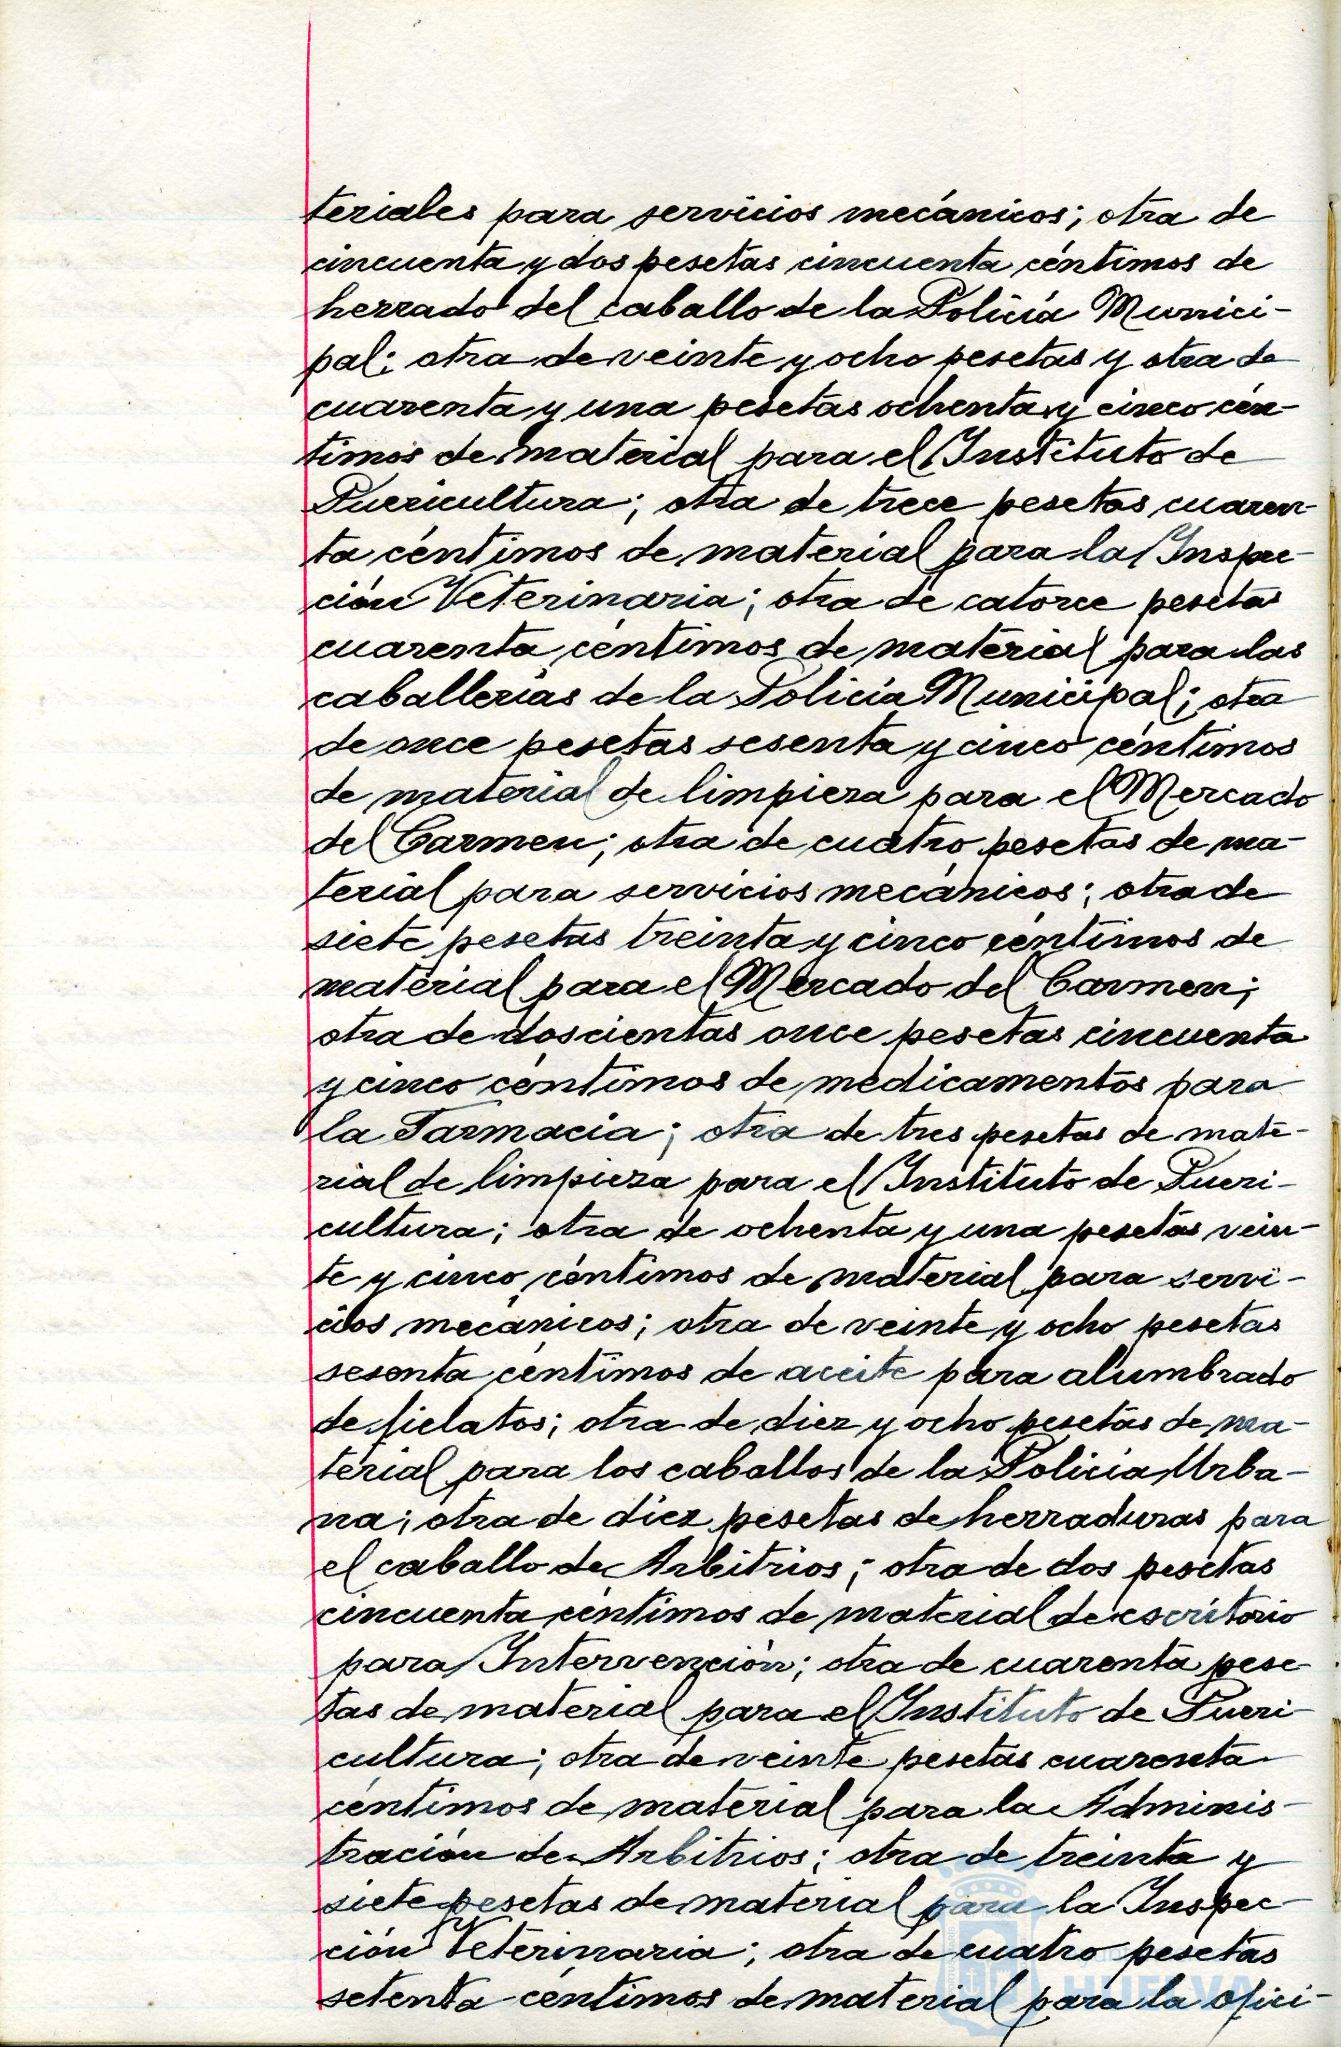 teriales para servicios mecánicos; otra de
cincuenta y dos pesetas cincuenta céntimos de
herrado del caballo de la Policía Munici-
pal; otra de veinte y ocho pesetas y otra de
cuarenta y una pesetas ochenta y cinco cén-
timos de material para el Instituto de
Puericultura; otra de trece pesetas cuaren-
ta céntimos de material para la Inspec-
ción Veterinaria; otra de catorce pesetas
cuarenta céntimos de material para las
caballerías de la Policía Municipal; otra
de once pesetas sesenta y cinco céntimos
de material de limpieza para el Mercado
del Carmen; otra de cuatro pesetas de ma-
terial para servicios mecánicos; otra de
siete pesetas treinta y cinco céntimos de
material para el Mercado del Carmen;
otra de doscientas once pesetas cincuenta
y cinco céntimos de medicamentos para
la Farmacia; otra de tres pesetas de mate-
rial de limpieza para el Instituto de Pueri-
cultura; otra de ochenta y una pesetas vein-
te y cinco céntimos de material para servi-
cios mecánicos; otra de veinte y ocho pesetas
sesenta céntimos de aceite para alumbrado
de fielatos; otra de diez y ocho pesetas de ma-
terial para los caballos de la Policía Urba-
na; otra de diez pesetas de herraduras para
el caballo de Arbitrios; otra de dos pesetas
cincuenta céntimos de material de escritorio
para Intervención; otra de cuarenta pese-
tas de material para el Instituto de Pueri-
cultura; otra de veinte pesetas cuarenta
céntimos de material para la Adminis-
tración de Arbitrios; otra de treinta y
siete pesetas de material para la Inspec-
ción Veterinaria; otra de cuatro pesetas
setenta céntimos de material para la ofici-
HUELVA